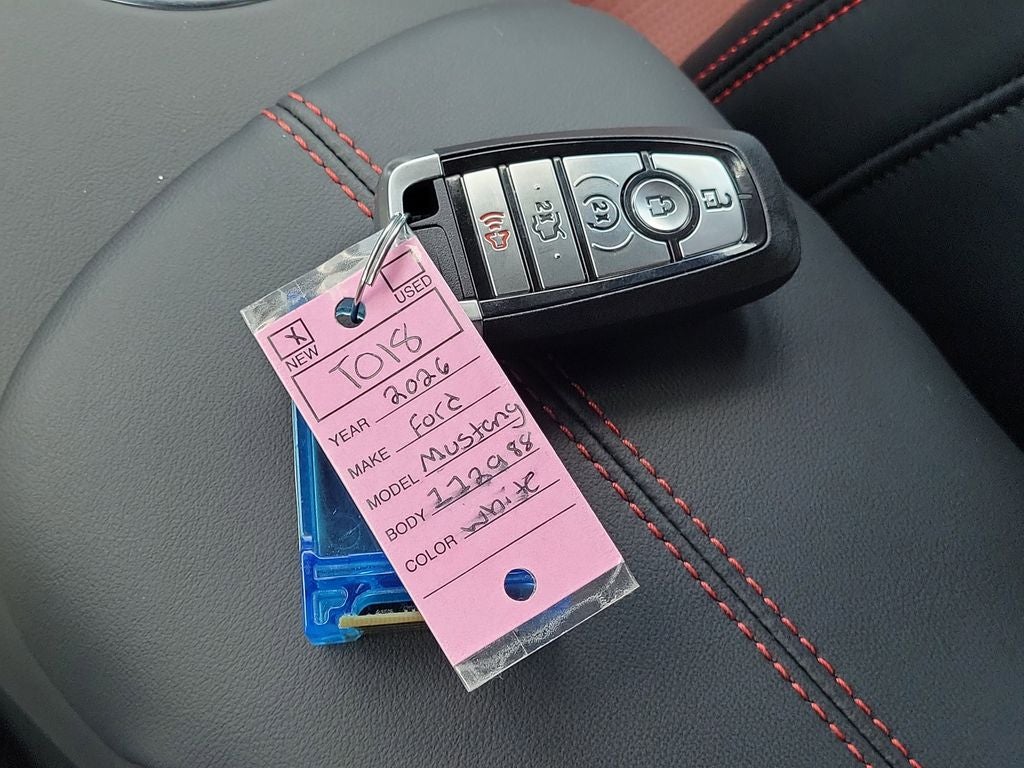 NEW USED
TO18
YEAR 2026
MAKE Ford
MODEL Mustang
BODY 112988
COLOR white
2x
2x